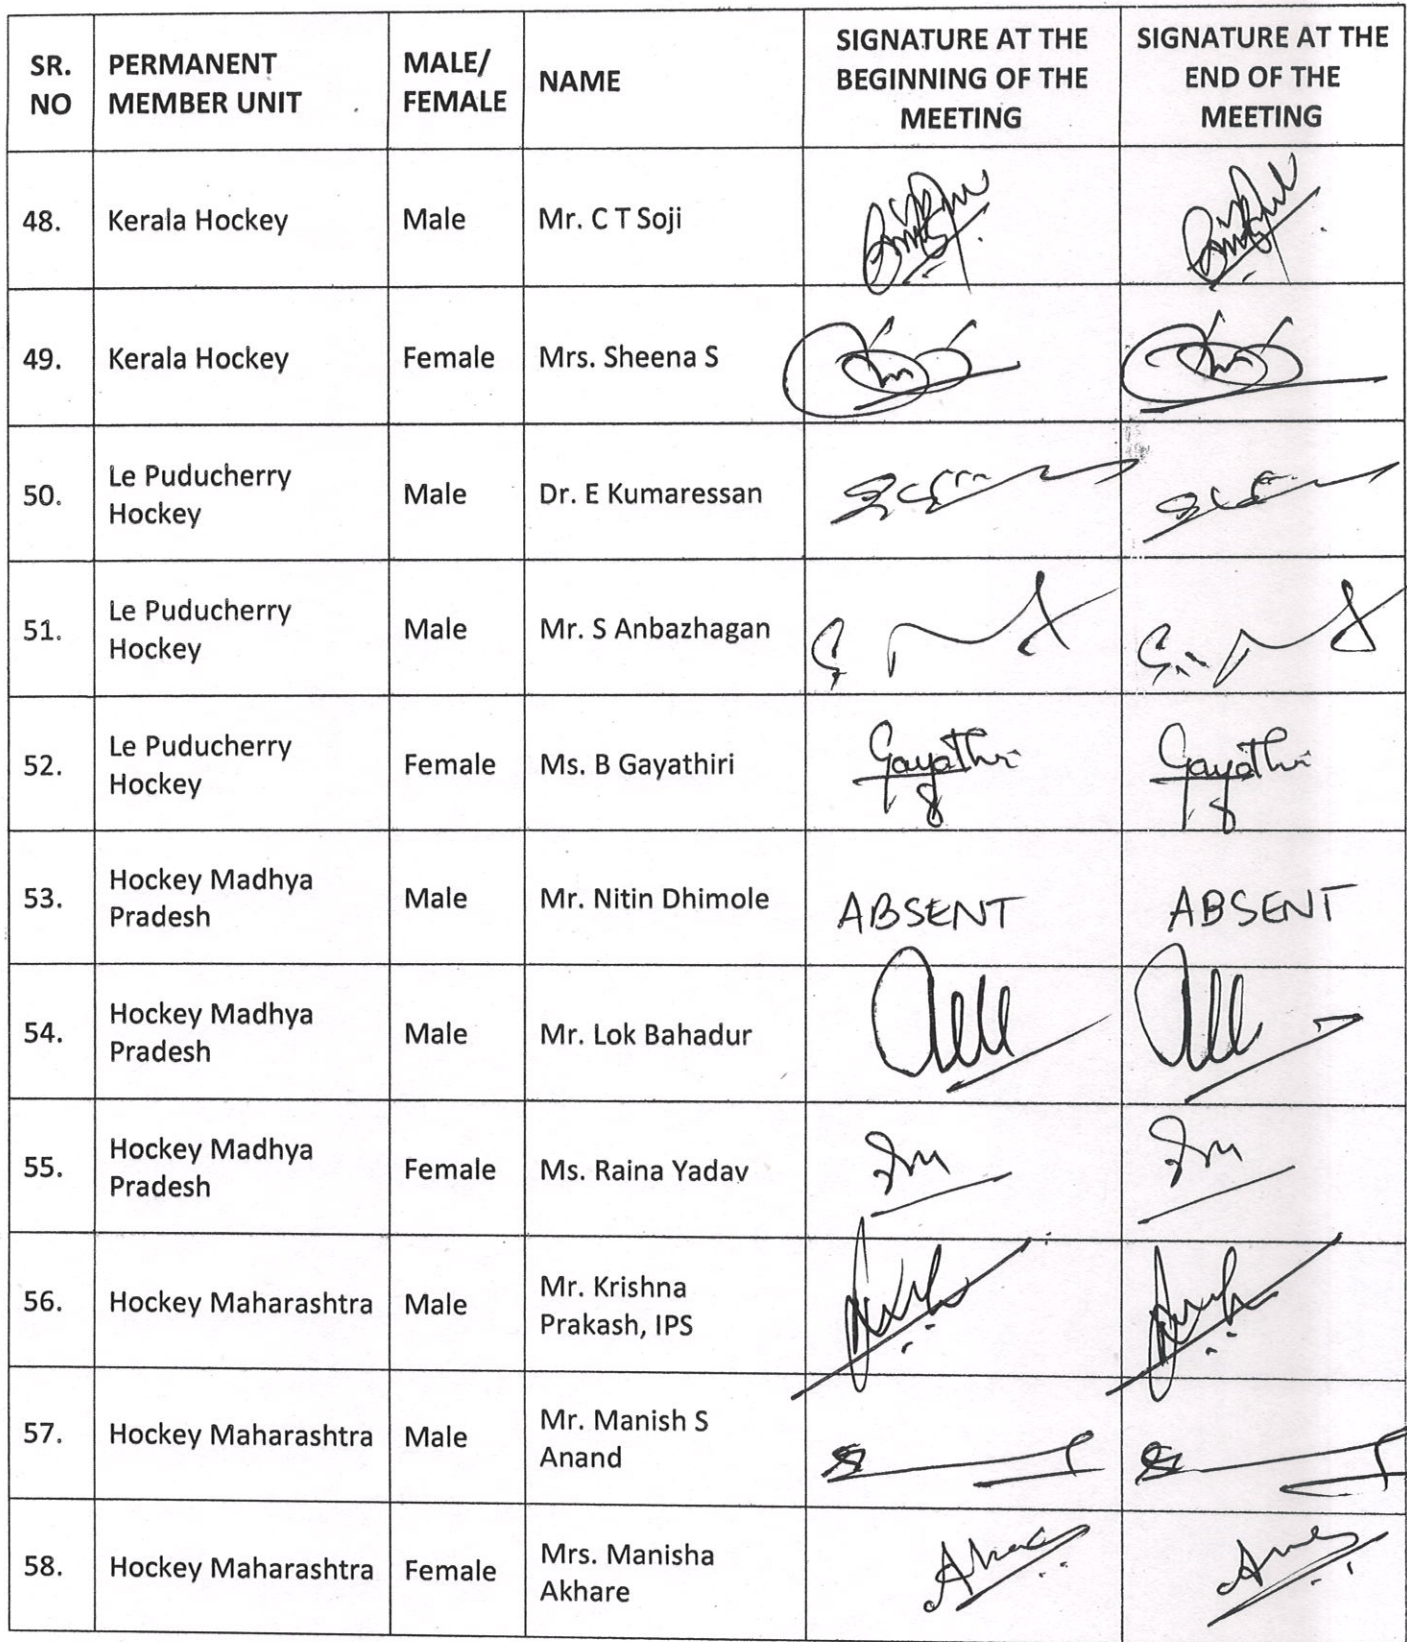 SR. NO
PERMANENT MEMBER UNIT
MALE/ FEMALE
NAME
SIGNATURE AT THE BEGINNING OF THE MEETING
SIGNATURE AT THE END OF THE MEETING
48.
Kerala Hockey
Male
Mr. C T Soji
49.
Kerala Hockey
Female
Mrs. Sheena S
50.
Le Puducherry
Hockey
Male
Dr. E Kumaressan
51.
Le Puducherry
Hockey
Male
Mr. S Anbazhagan
52.
Le Puducherry
Hockey
Female
Ms. B Gayathiri
Gayathri
Gayathri
53.
Hockey Madhya
Pradesh
Male
Mr. Nitin Dhimole
ABSENT
ABSENT
54.
Hockey Madhya
Pradesh
Male
Mr. Lok Bahadur
55.
Hockey Madhya
Pradesh
Female
Ms. Raina Yadav
56.
Hockey Maharashtra
Male
Mr. Krishna
Prakash, IPS
57.
Hockey Maharashtra
Male
Mr. Manish S
Anand
58.
Hockey Maharashtra
Female
Mrs. Manisha
Akhare